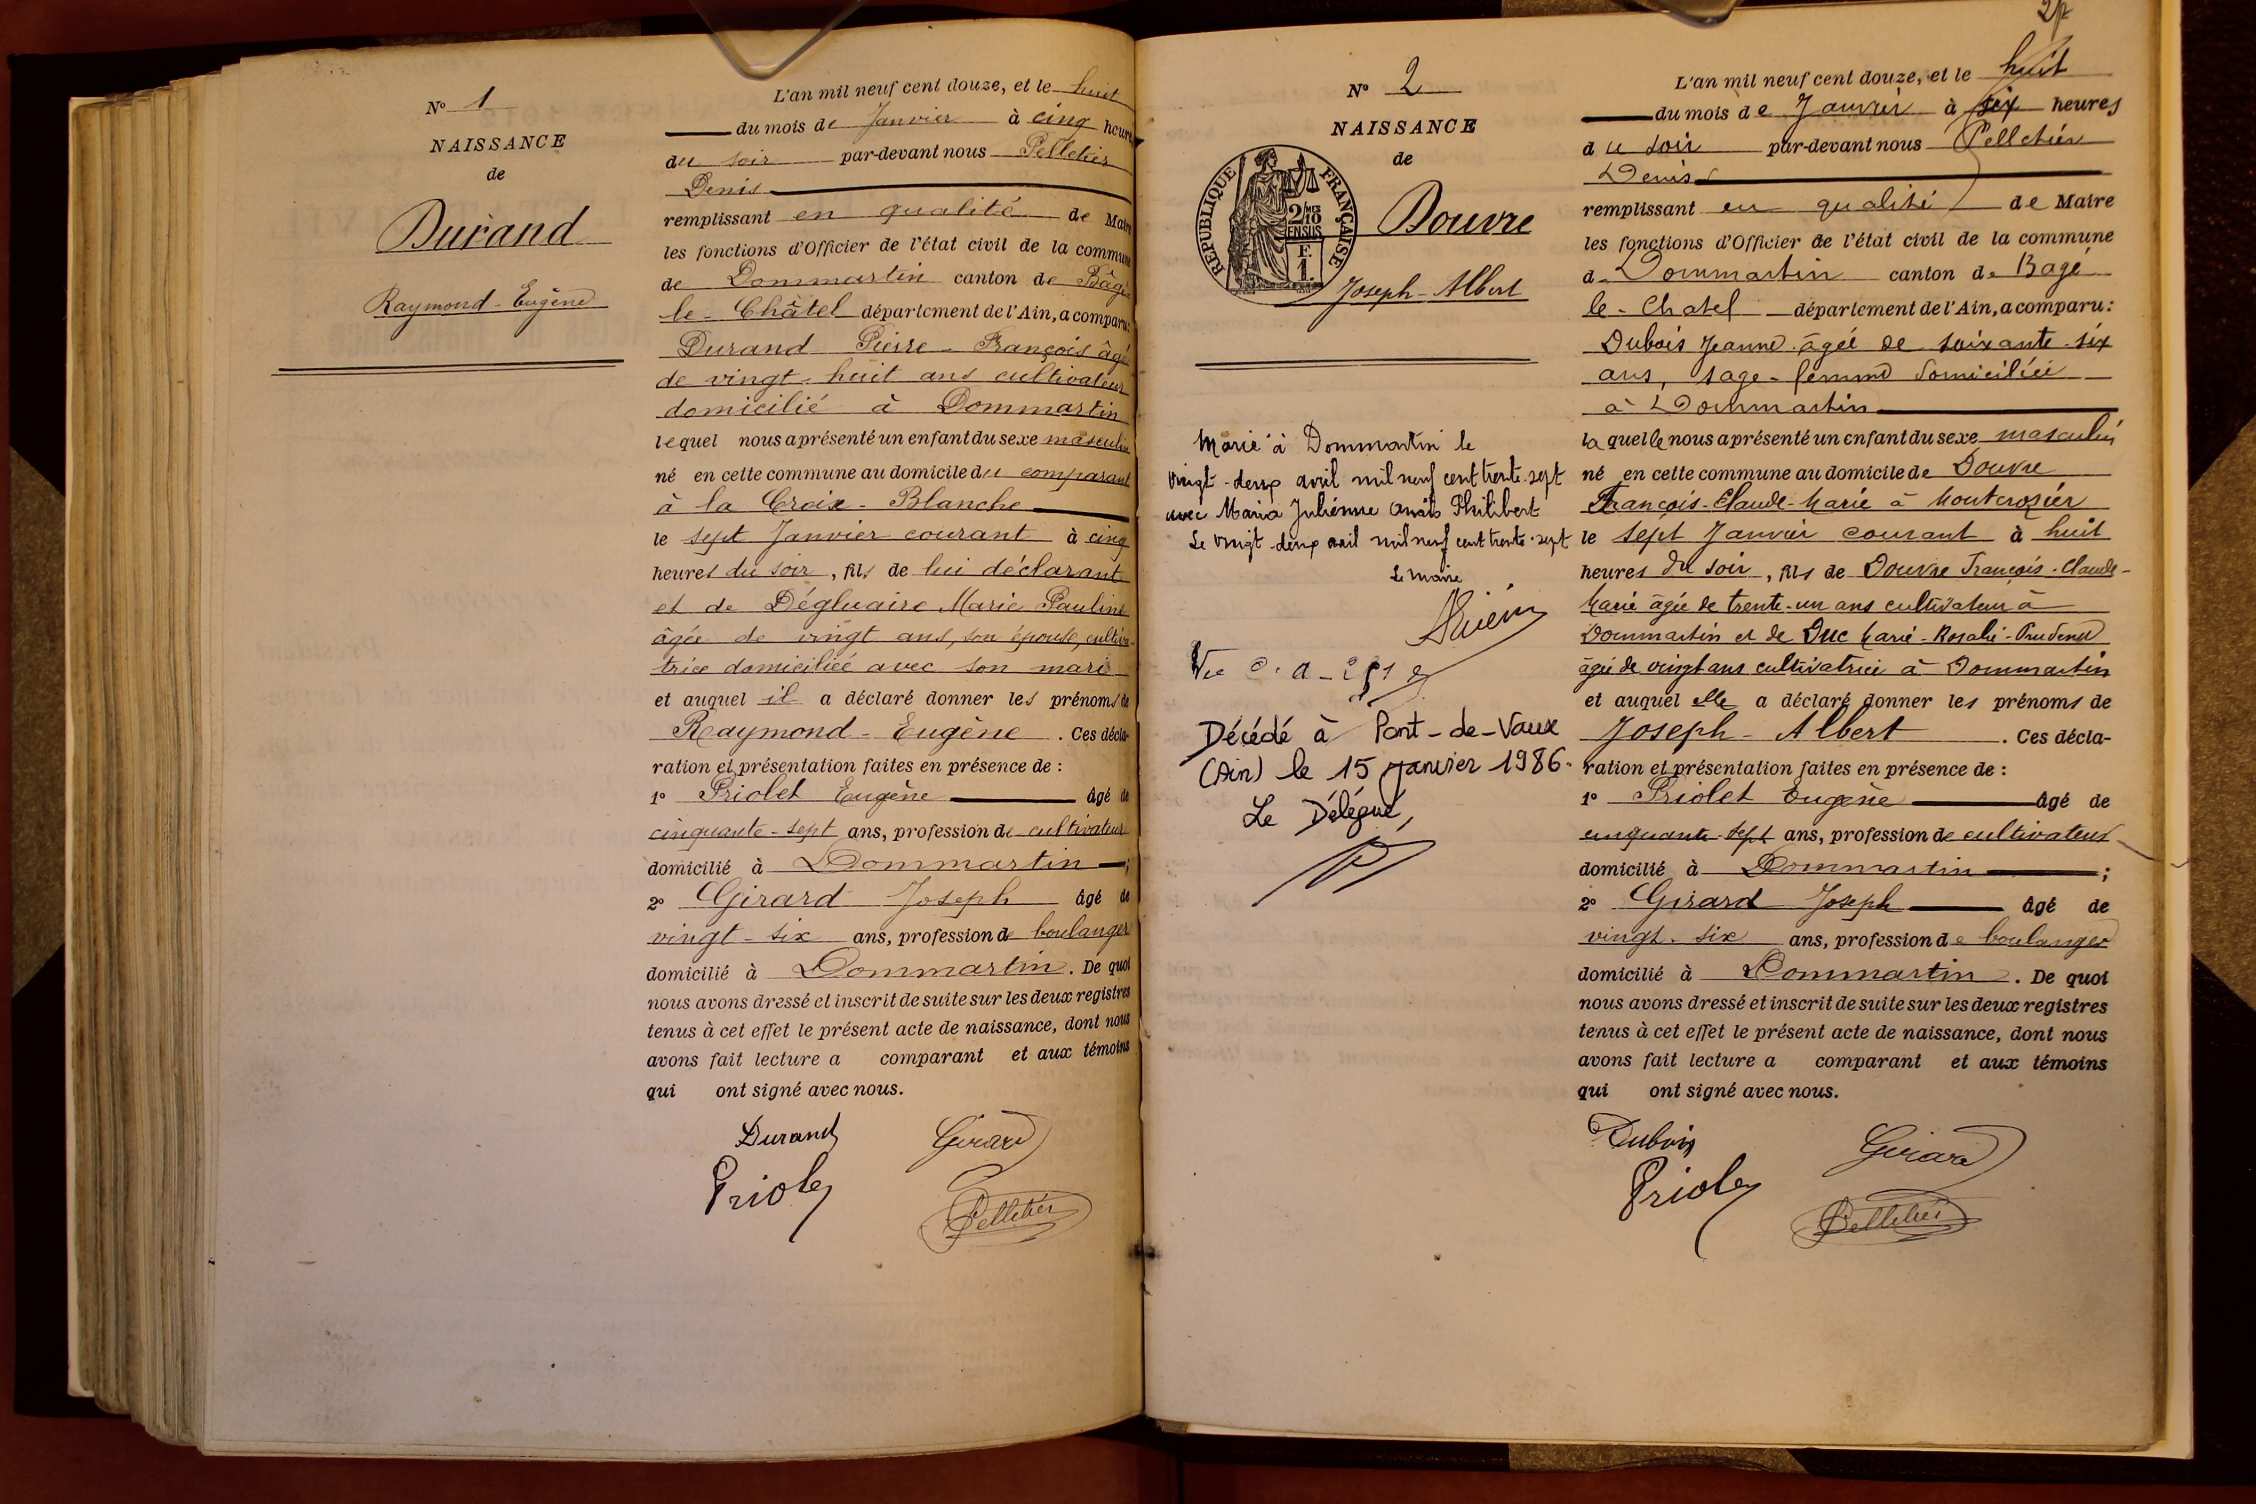 N° 1
NAISSANCE
de
Durand
Raymond-Eugène
L'an mil neuf cent douze, et le huit
du mois de Janvier à cinq heures
du soir par-devant nous Pelletier
Denis
remplissant en qualité de Maire
les fonctions d'Officier de l'état civil de la commune
de Dommartin canton de Bâgé
le-Châtel département de l'Ain, a comparu:
Durand Pierre-François âgé
de vingt-huit ans cultivateur
domicilié à Dommartin
lequel nous a présenté un enfant du sexe masculin
né en cette commune au domicile du comparant
à la Croix-Blanche
le sept Janvier courant à cinq
heures du soir, fils de lui déclarant
et de Dégluaire Marie Pauline
âgée de vingt ans, son épouse, cultiva-
trice domiciliée avec son mari
et auquel il a déclaré donner les prénoms de
Raymond-Eugène. Ces décla-
ration et présentation faites en présence de :
1° Priolet Eugène âgé de
cinquante-sept ans, profession de cultivateur
domicilié à Dommartin ;
2° Girard Joseph âgé de
vingt-six ans, profession de boulanger
domicilié à Dommartin. De quoi
nous avons dressé et inscrit de suite sur les deux registres
tenus à cet effet le présent acte de naissance, dont nous
avons fait lecture a comparant et aux témoins
qui ont signé avec nous.
Durand Girard
Priolet
Pelletier
N° 2
NAISSANCE
de
RÉPUBLIQUE FRANÇAISE
2/10 MES
EN SUS
F.
1.
Douvre
Joseph-Albert
Marié à Dommartin le
vingt-deux avril mil neuf cent trente-sept
avec Maria Julienne Anaïs Philibert
Le vingt-deux avril mil neuf cent trente-sept
Le Maire
Décédé à Pont-de-Vaux
(Ain) le 15 Janvier 1986.
Le Délégué,
L'an mil neuf cent douze, et le huit
du mois de Janvier à six heures
du soir par-devant nous Pelletier
Denis
remplissant en qualité de Maire
les fonctions d'Officier de l'état civil de la commune
de Dommartin canton de Bagé
le-Chatel département de l'Ain, a comparu :
Dubois Jeanne âgée de soixante-six
ans, sage-femme domiciliée
à Dommartin
laquelle nous a présenté un enfant du sexe masculin
né en cette commune au domicile de Douvre
François-Claude-Marie à Montcrozier
le sept Janvier courant à huit
heures du soir, fils de Douvre François-Claude-
Marie âgé de trente-un ans cultivateur à
Dommartin et de Duc Marie-Rosalie-Prudence
âgée de vingt ans cultivatrice à Dommartin
et auquel elle a déclaré donner les prénoms de
Joseph-Albert. Ces décla-
ration et présentation faites en présence de :
1° Priolet Eugène âgé de
cinquante-sept ans, profession de cultivateur
domicilié à Dommartin ;
2° Girard Joseph âgé de
vingt-six ans, profession de boulanger
domicilié à Dommartin. De quoi
nous avons dressé et inscrit de suite sur les deux registres
tenus à cet effet le présent acte de naissance, dont nous
avons fait lecture a comparant et aux témoins
qui ont signé avec nous.
Dubois Girard
Priolet
Pelletier